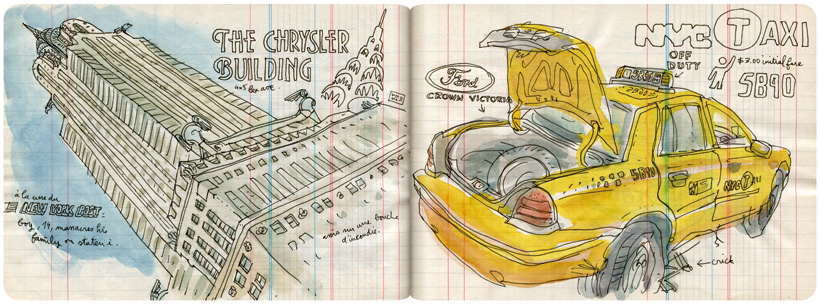 THE CHRYSLER
BUILDING
405 lex ave.
à la une du
NEW YORK POST:
boy, 14, massacres his
family on staten i.
assis sur une bouche
d'incendie.
Ford
CROWN VICTORIA
NYC TAXI
OFF
DUTY
$3.00 initial fare
5B90
5B90
NYC TAXI
← crick